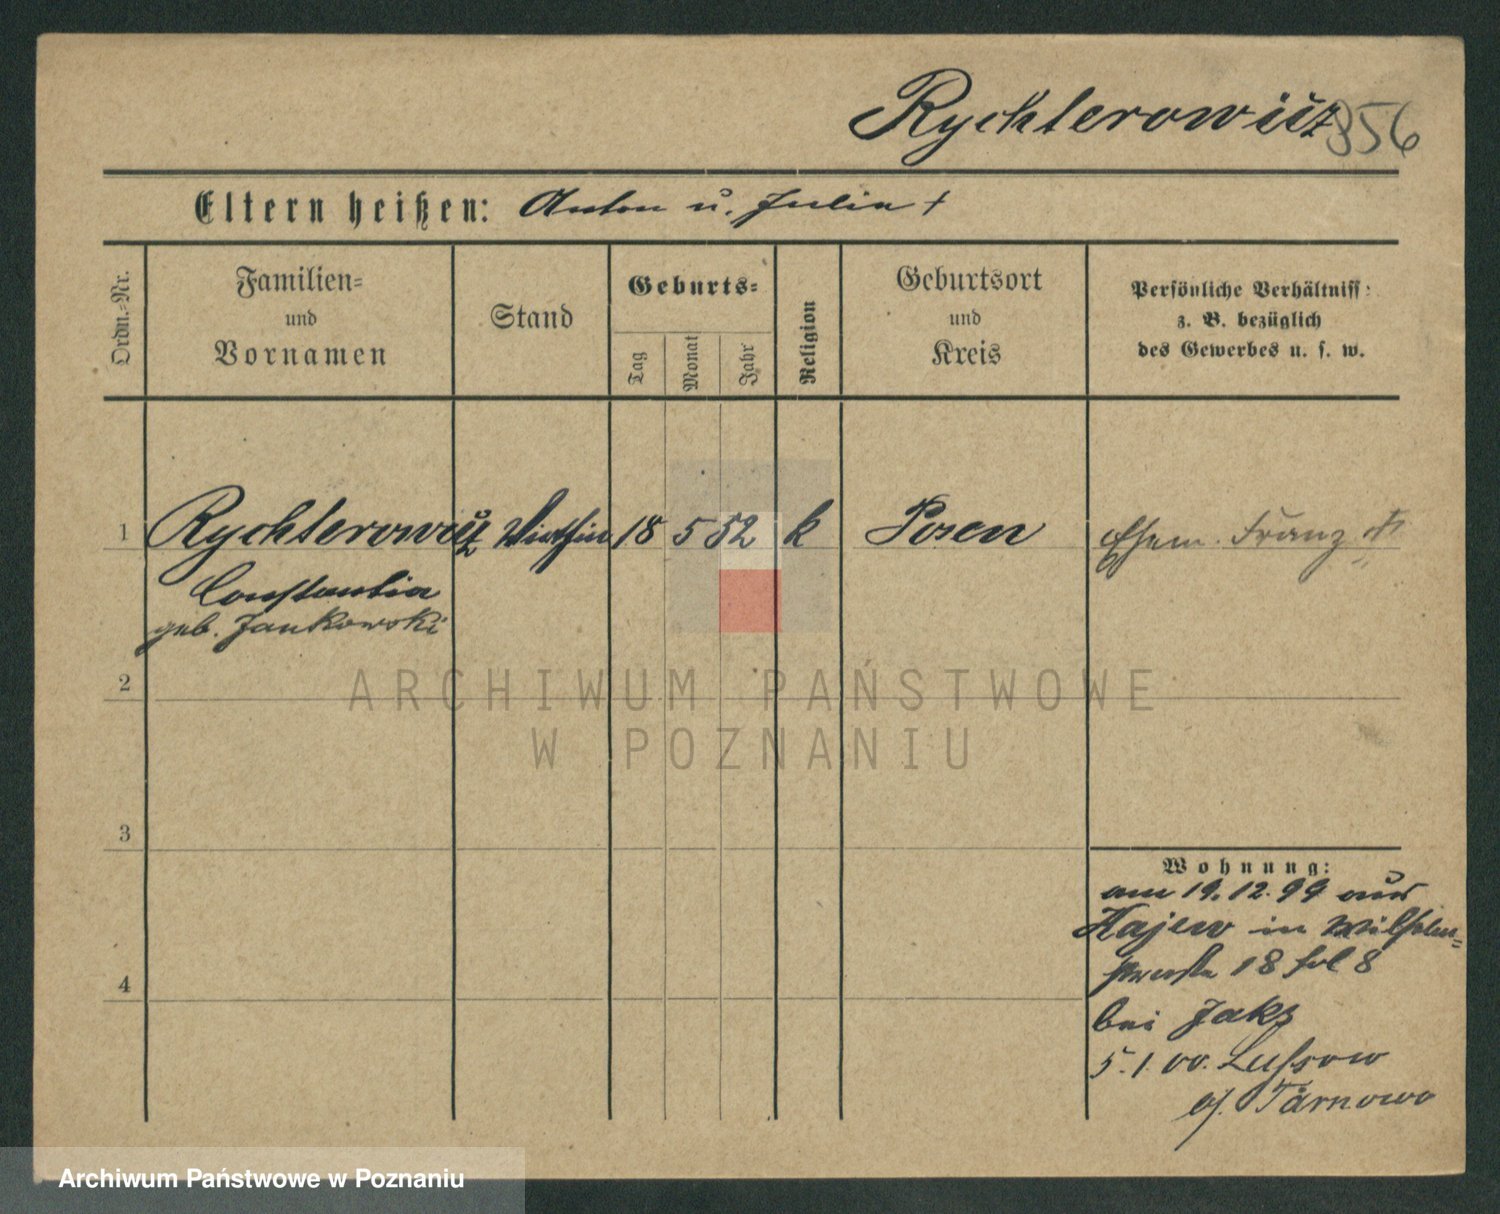 Rychterowicz 356
Eltern heißen: Anton u. Julia †
Ordn.-Nr.
Familien-
und
Vornamen
Stand
Geburts-
Tag
Monat
Jahr
Religion
Geburtsort
und
Kreis
Persönliche Verhältniss:
z. B. bezüglich
des Gewerbes u. s. w.
1 Rychterowicz Wirthin 18 5 52 k Posen Ehem. Franz †
Constantia
geb. Jankowski
2
ARCHIWUM PAŃSTWOWE
W POZNANIU
3
Wohnung:
am 19.12.99 aus
Kajew in Wilhelm-
strasse 18 fol 8
4
bei Jaks
5.1.00. Lussowo
Tarnowo
Archiwum Państwowe w Poznaniu